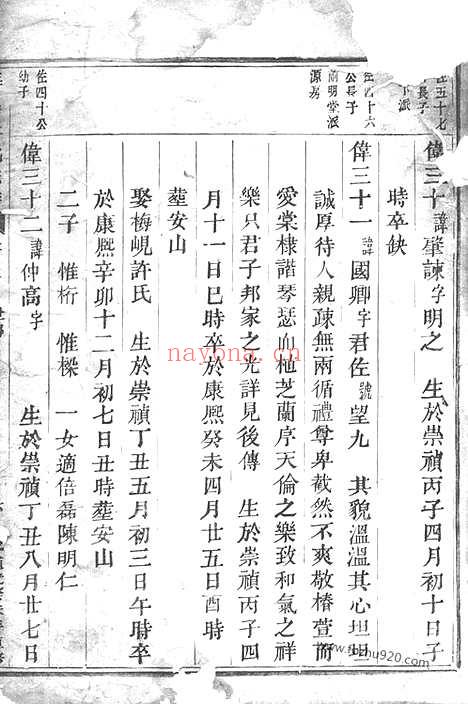 偉三十諱肇諫字明之 生於崇禎丙子四月初十日子
時卒缺
公長子
南明堂派
源房
偉三十一諱國卿字君佐號望九 其貌溫溫其心坦坦
誠厚待人親疎無兩循禮尊卑截然不爽敬椿萱而
愛棠棣諧琴瑟而植芝蘭序天倫之樂致和氣之祥
樂只君子邦家之光詳見後傳 生於崇禎丙子四
月十一日巳時卒於康熙癸未四月廿五日酉時
塟安山
娶梅峴許氏 生於崇禎丁丑五月初三日午時卒
於康熙辛卯十二月初七日丑時塟安山
二子 惟桁 惟樑 一女適倍磊陳明仁
佐四十公
幼子
偉三十二諱仲高字 生於崇禎丁丑八月廿七日
nayona.cn